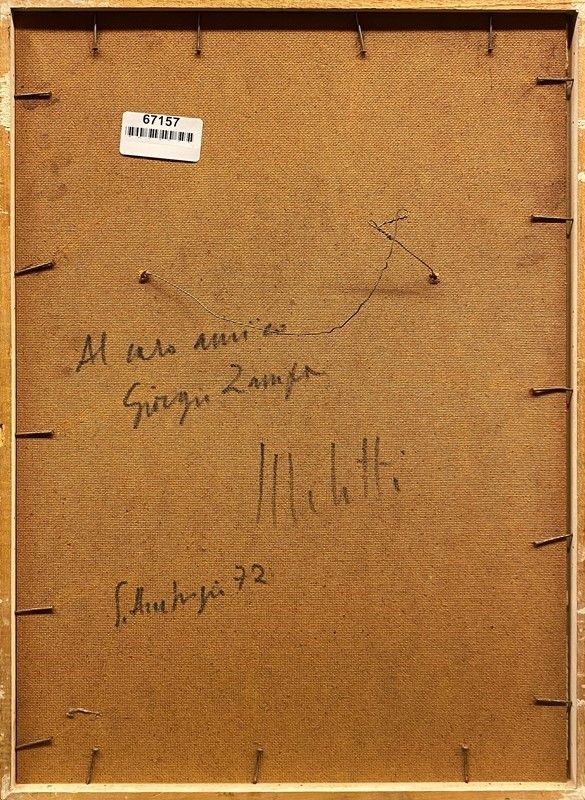 67157
Al caro amico
Giorgio Zampa
S. Ambrogio 72